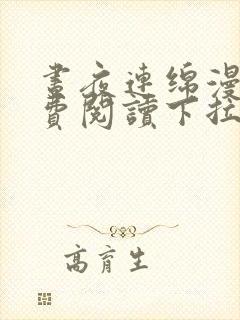 晝夜連綿漫
費閱讀下拉
高育生